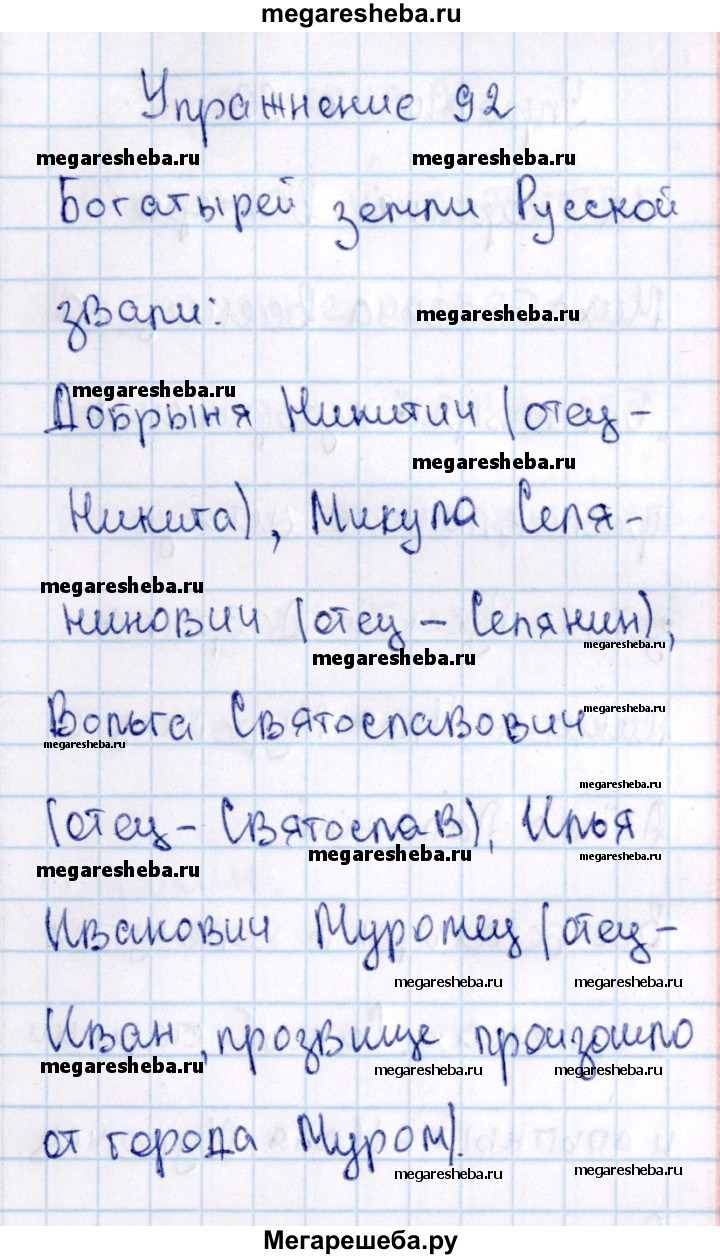 megaresheba.ru
Упражнение 92
megaresheba.ru megaresheba.ru
Богатырей земли Русской
звали: megaresheba.ru
megaresheba.ru
Добрыня Никитич (отец-
megaresheba.ru
Никита), Микула Селя-
megaresheba.ru
нинович (отец - Селянин),
megaresheba.ru megaresheba.ru
Вольга Святославович megaresheba.ru
megaresheba.ru
megaresheba.ru
(отец - Святослав), Илья
megaresheba.ru megaresheba.ru
megaresheba.ru
Иванович Муромец (отец-
megaresheba.ru megaresheba.ru
Иван, прозвище произошло
megaresheba.ru megaresheba.ru megaresheba.ru
от города Муром).
megaresheba.ru megaresheba.ru
Мегарешеба.ру